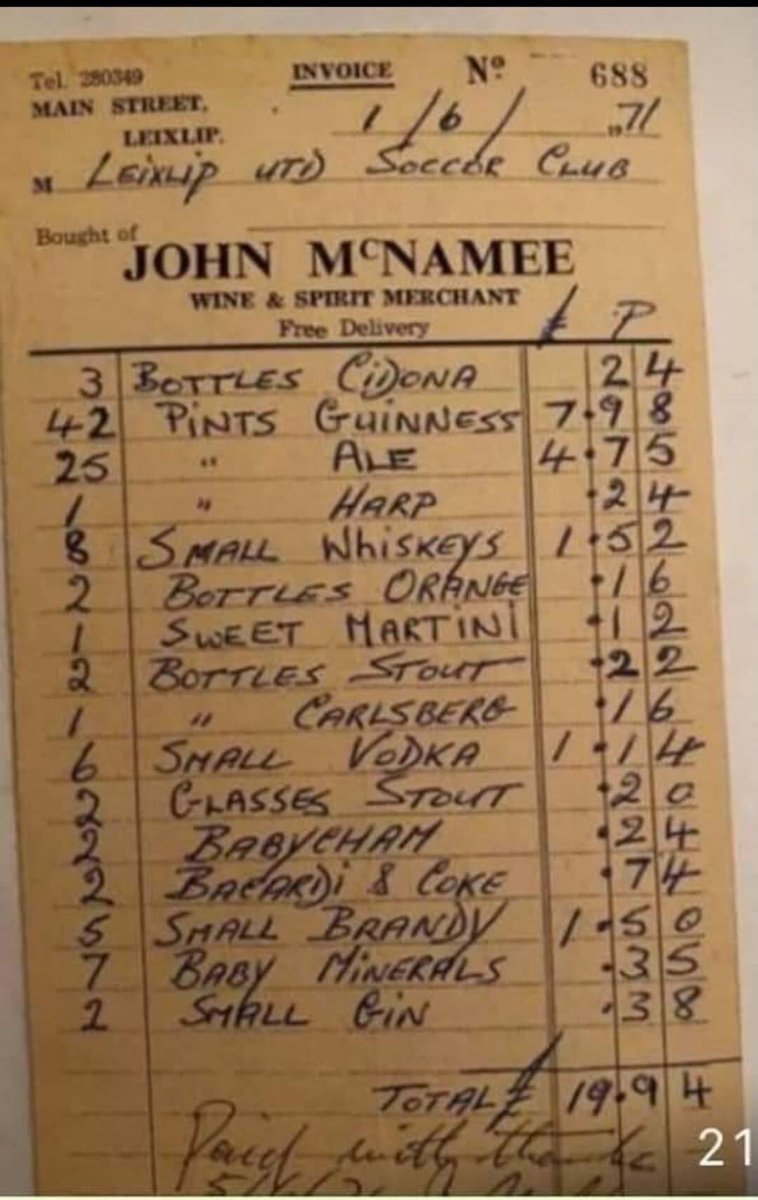 Tel. 280349 INVOICE Nº 688
MAIN STREET,
LEIXLIP. 1/6/1971
M LEIXLIP UTD SOCCOR CLUB
Bought of
JOHN McNAMEE
WINE & SPIRIT MERCHANT
Free Delivery £ P
3 BOTTLES CIDONA 24
42 PINTS GUINNESS 7.98
25 " ALE 4.75
1 " HARP .24
8 SMALL WHISKEYS 1.52
2 BOTTLES ORANGE .16
1 SWEET MARTINI .12
2 BOTTLES STOUT .22
1 " CARLSBERG .16
6 SMALL VODKA 1.14
2 GLASSES STOUT .20
2 BABYCHAM .24
2 BACARDI & COKE .74
5 SMALL BRANDY 1.50
7 BABY MINERALS .35
2 SMALL GIN .38
TOTAL £ 19.94
Paid with thanks
21